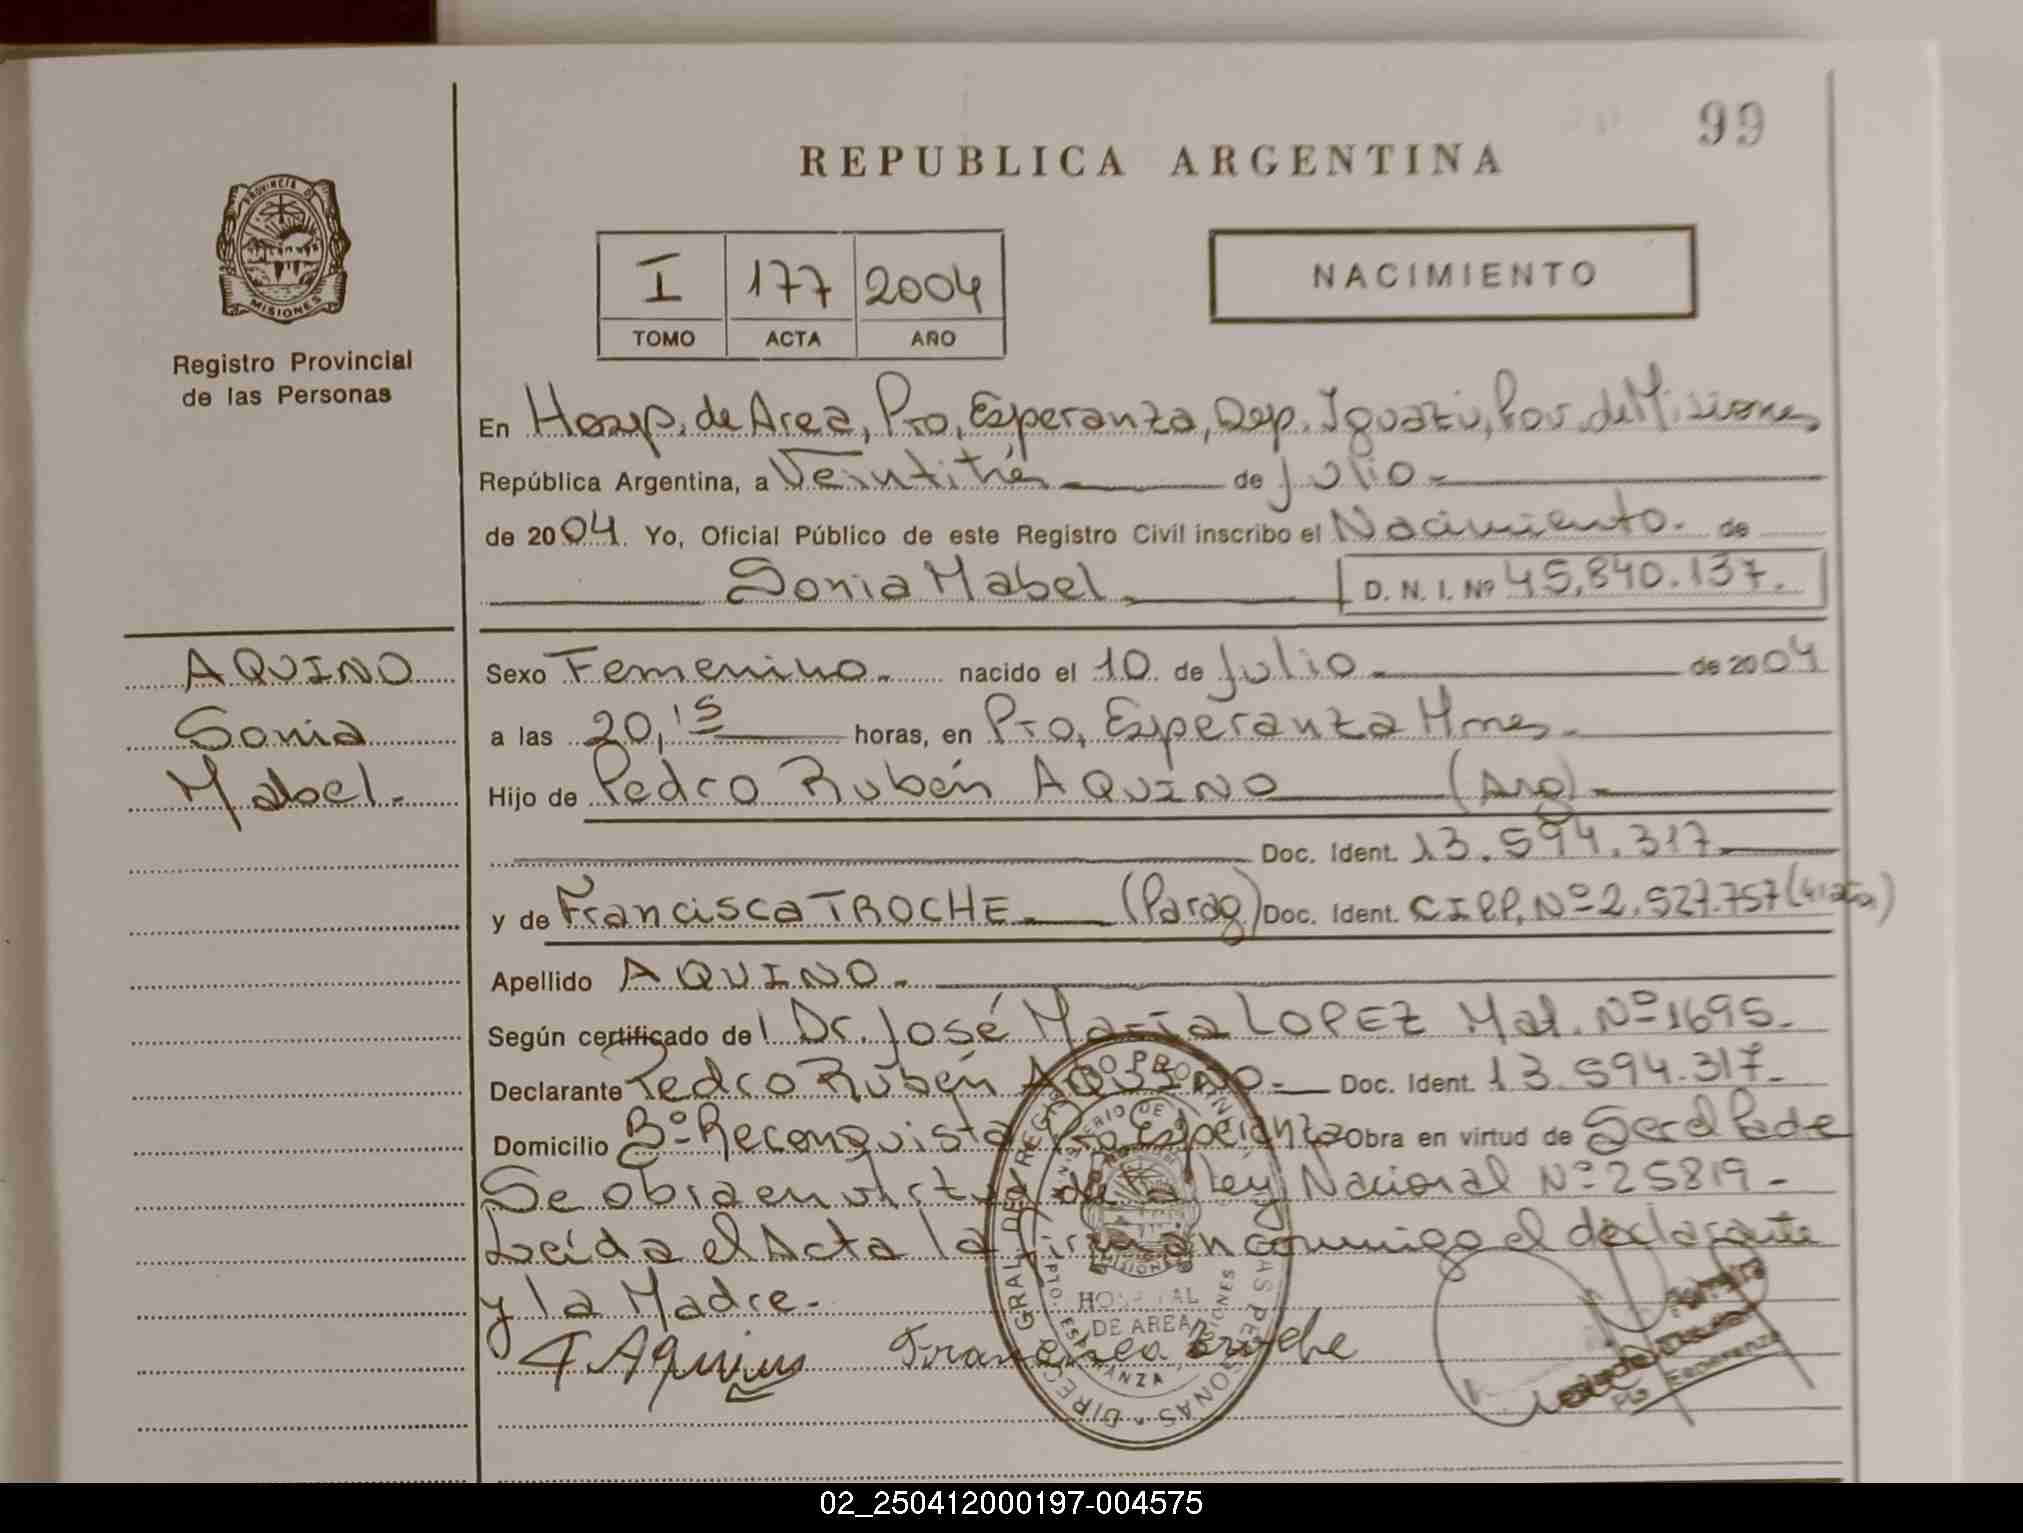 99
REPUBLICA ARGENTINA
PROVINCIA DE
MISIONES
Registro Provincial
de las Personas
I 177 2004
TOMO ACTA AÑO
NACIMIENTO
En Hosp. de Area, Pto, Esperanza, Dep. Iguazú, Pov. de Misiones
República Argentina, a Veintitrés de Julio.-
de 2004. Yo, Oficial Público de este Registro Civil inscribo el Nacimiento. de
Sonia Mabel. D. N. I. Nº 45.840.137.
AQUINO
Sonia
Mabel.-
Sexo Femenino.- nacido el 10 de Julio.- de 2004
a las 20,15 horas, en Pto, Esperanza Mnes.-
Hijo de Pedro Rubén AQUINO (Arg).-
Doc. Ident. 13.594.317
y de Francisca TROCHE.- (Parag) Doc. Ident. C.I.P.P. Nº 2.527.757
Apellido AQUINO.-
Según certificado de l Dr. José María LOPEZ Mat. Nº 1695.-
Declarante Pedro Rubén AQUINO.- Doc. Ident. 13.594.317.-
Domicilio Bº Reconquista Pto Esperanza Obra en virtud de
Se obra en virtud de la Ley Nacional Nº 25819.-
Leída el Acta la firman conmigo el declarante
y la Madre.-
Aquino Francisca Troche
HOSPITAL
DE AREA
Pto Esperanza
02_250412000197-004575